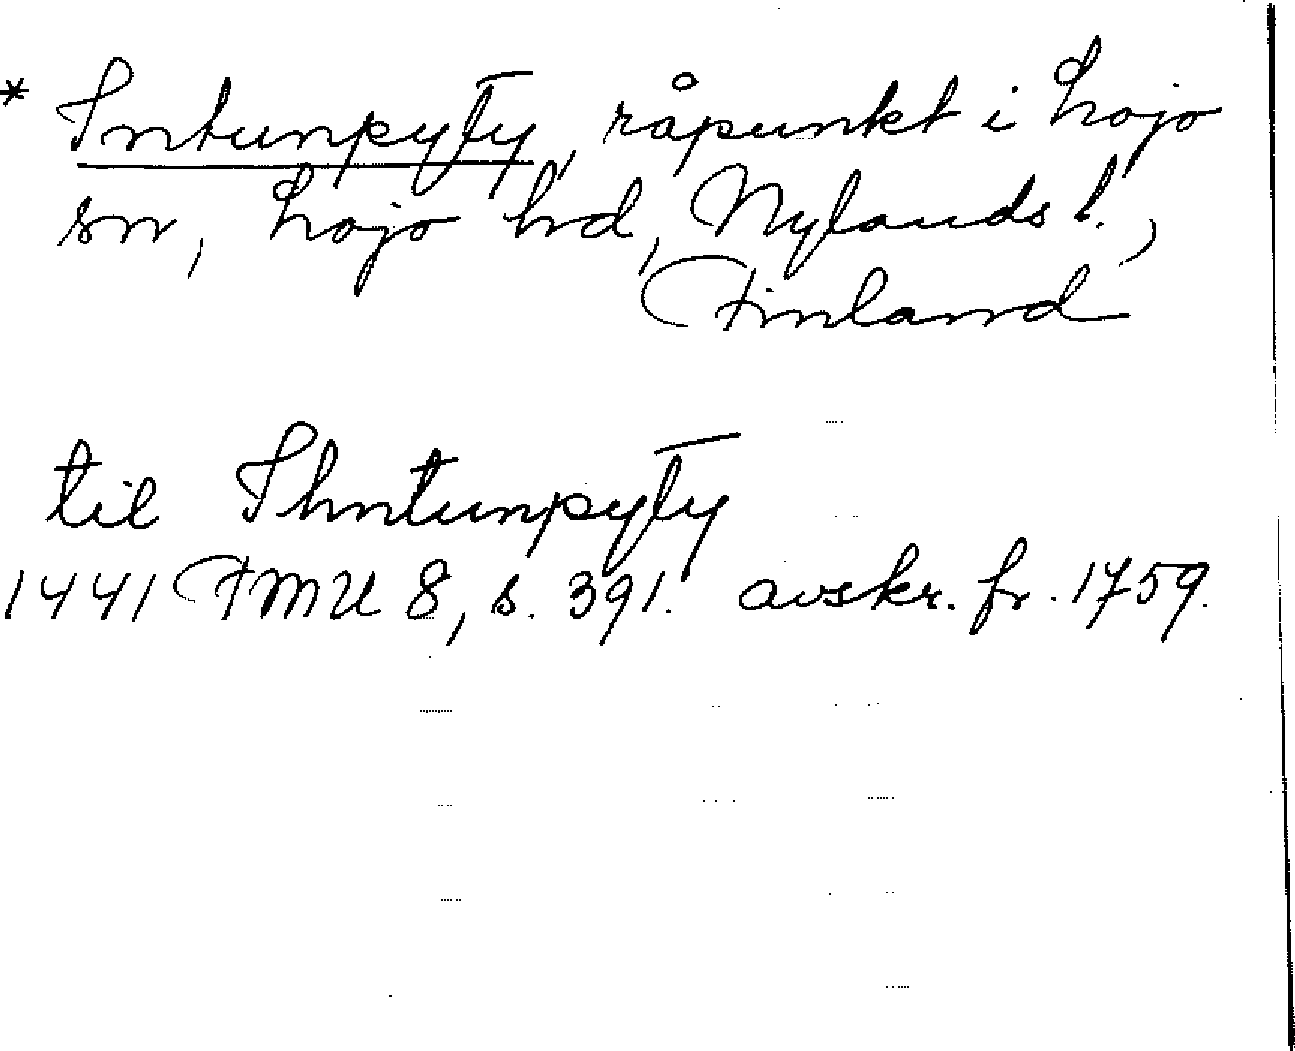 * Intunpyty, råpunkt i Lojo
sn, Lojo hd, Nylands l.,
Finland
til Ihntunpyty
1441 FMU 8, s. 391. avskr. fr. 1759.